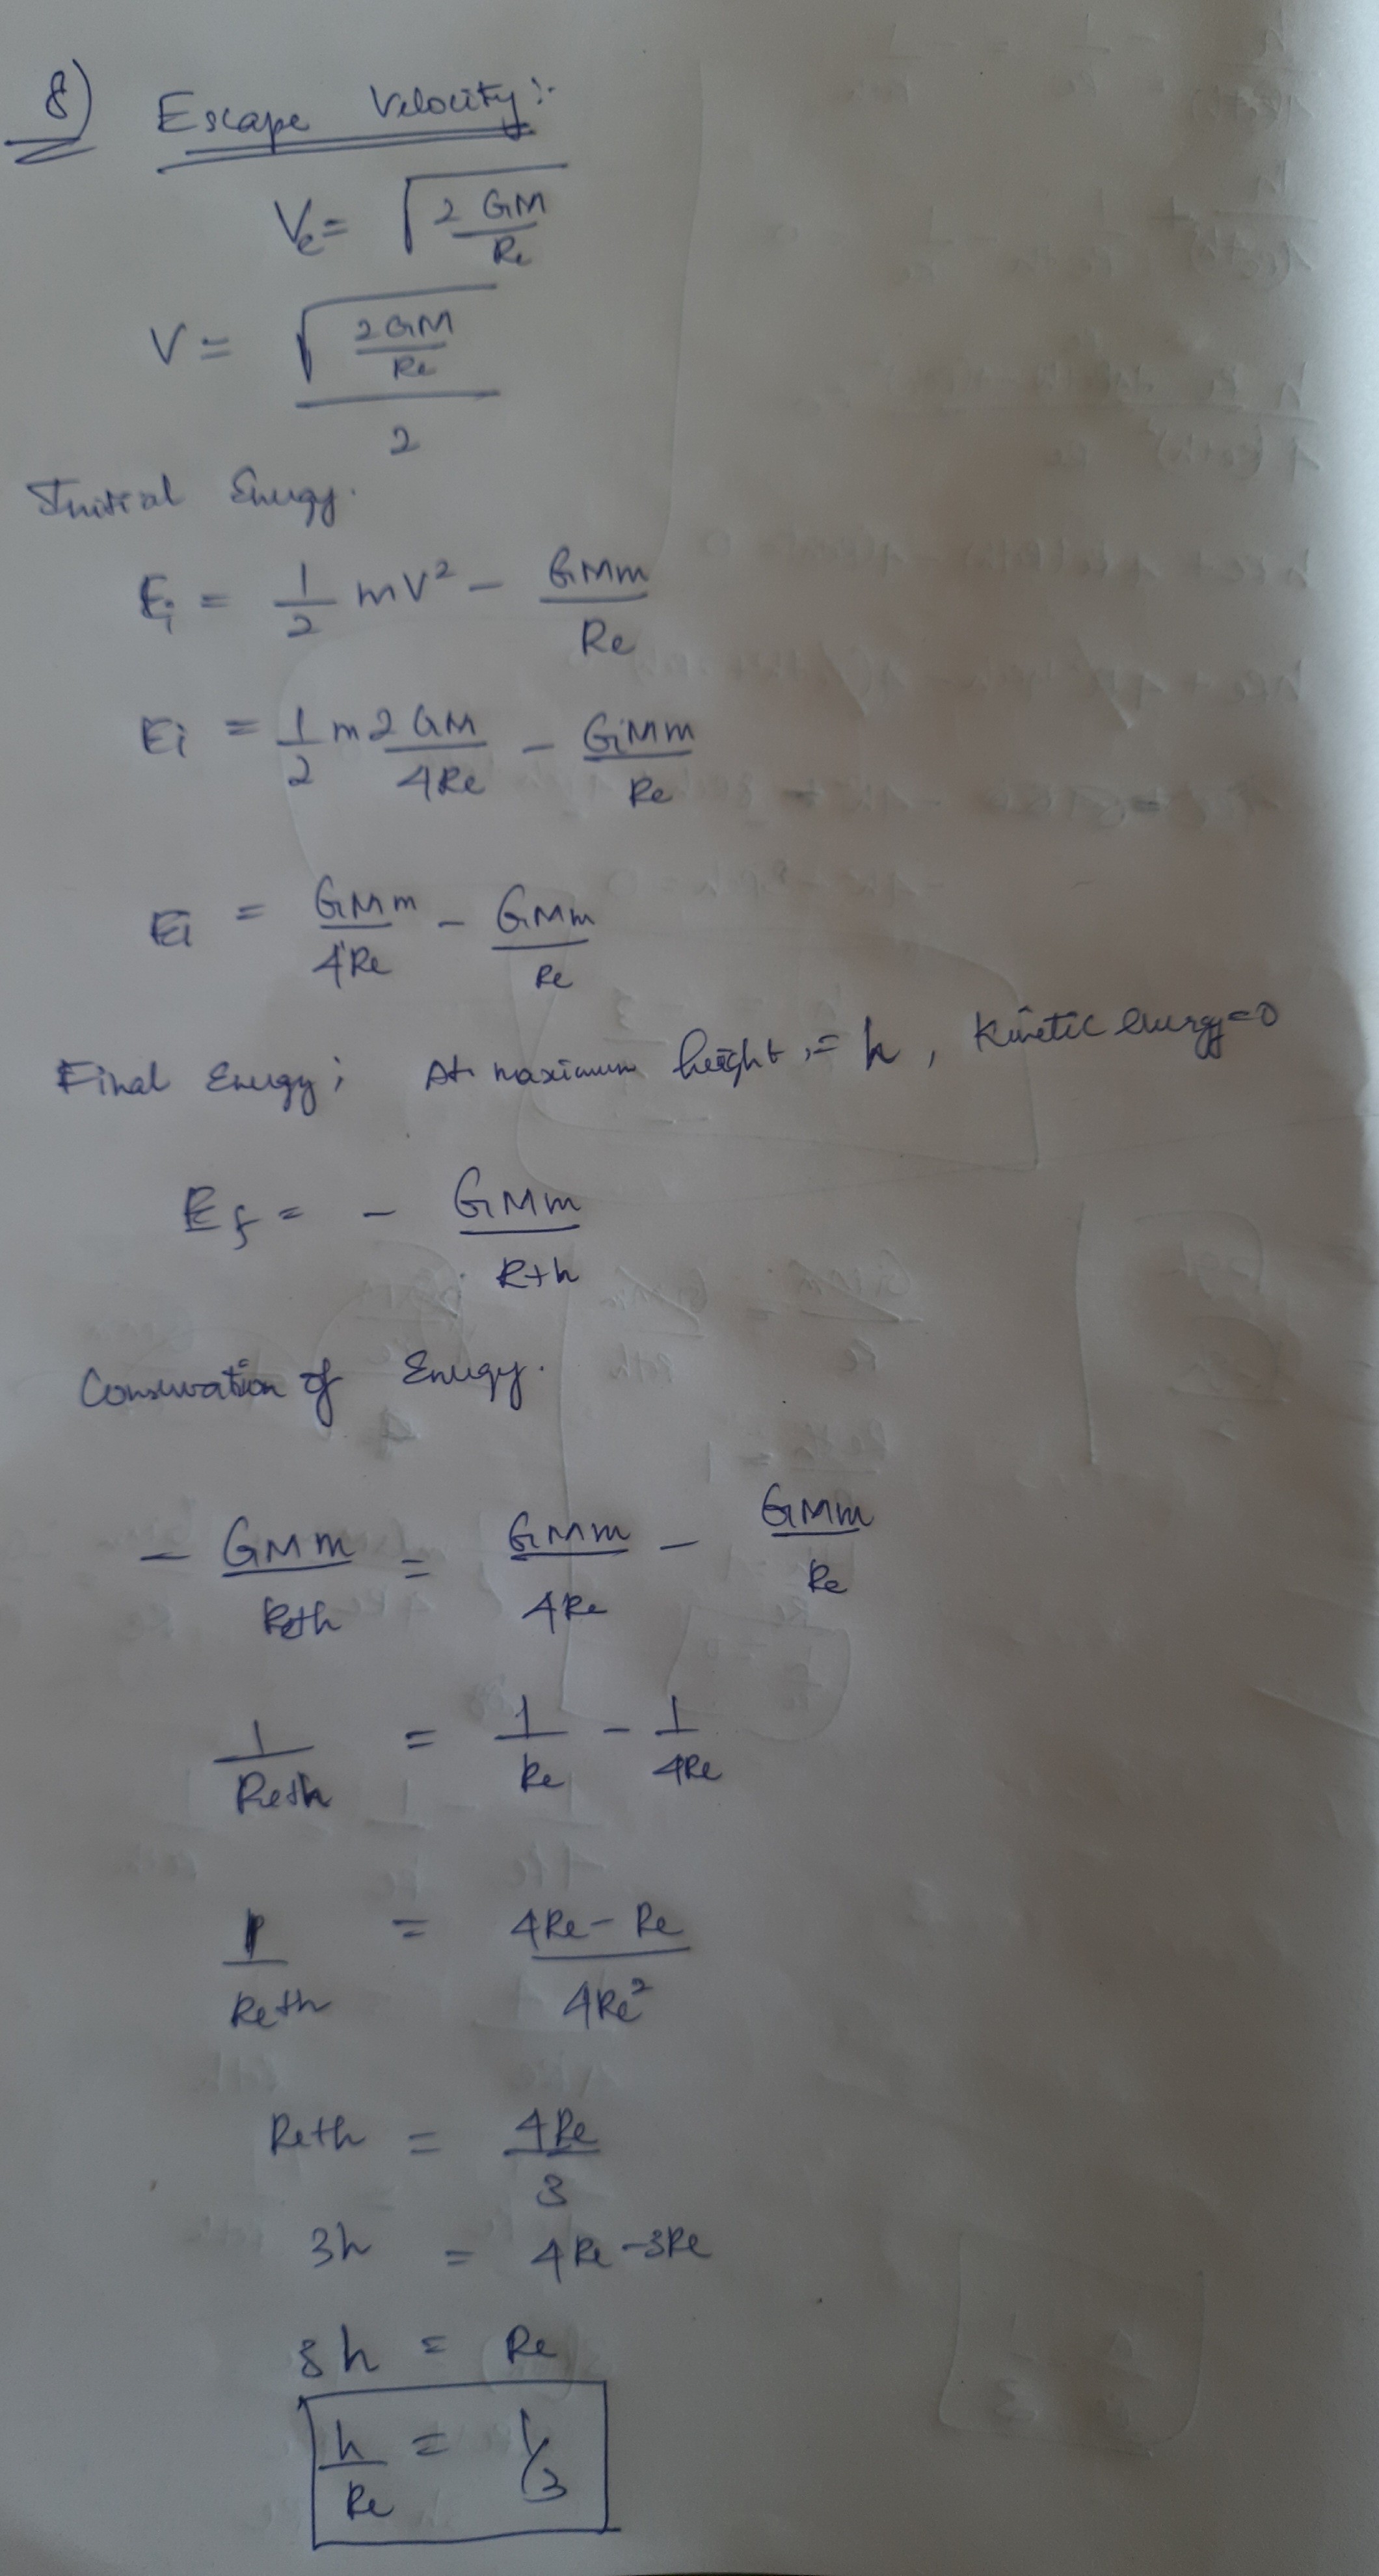 8) Escape Velocity:-
Ve = √(2GM/Re)
V = √(2GM/Re)/2
Initial Energy.
Ei = 1/2 mV² - GMm/Re
Ei = 1/2 m 2GM/4Re - GMm/Re
Ei = GMm/4Re - GMm/Re
Final Energy; At maximum height, = h, Kinetic energy=0
Ef = - GMm/R+h
Conservation of Energy.
- GMm/Re+h = GMm/4Re - GMm/Re
1/Re+h = 1/Re - 1/4Re
1/Re+h = 4Re-Re/4Re²
Re+h = 4Re/3
3h = 4Re-3Re
3h = Re
h/Re = 1/3